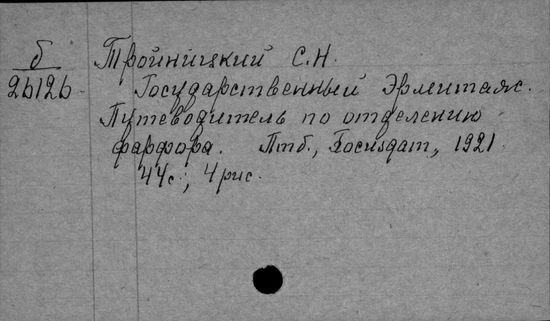 б Тройницкий С.Н.
26126 Государственный Эрмитаж.
Путеводитель по отделению
фарфора. Птб., Госиздат, 1921
44с., 4 рис.